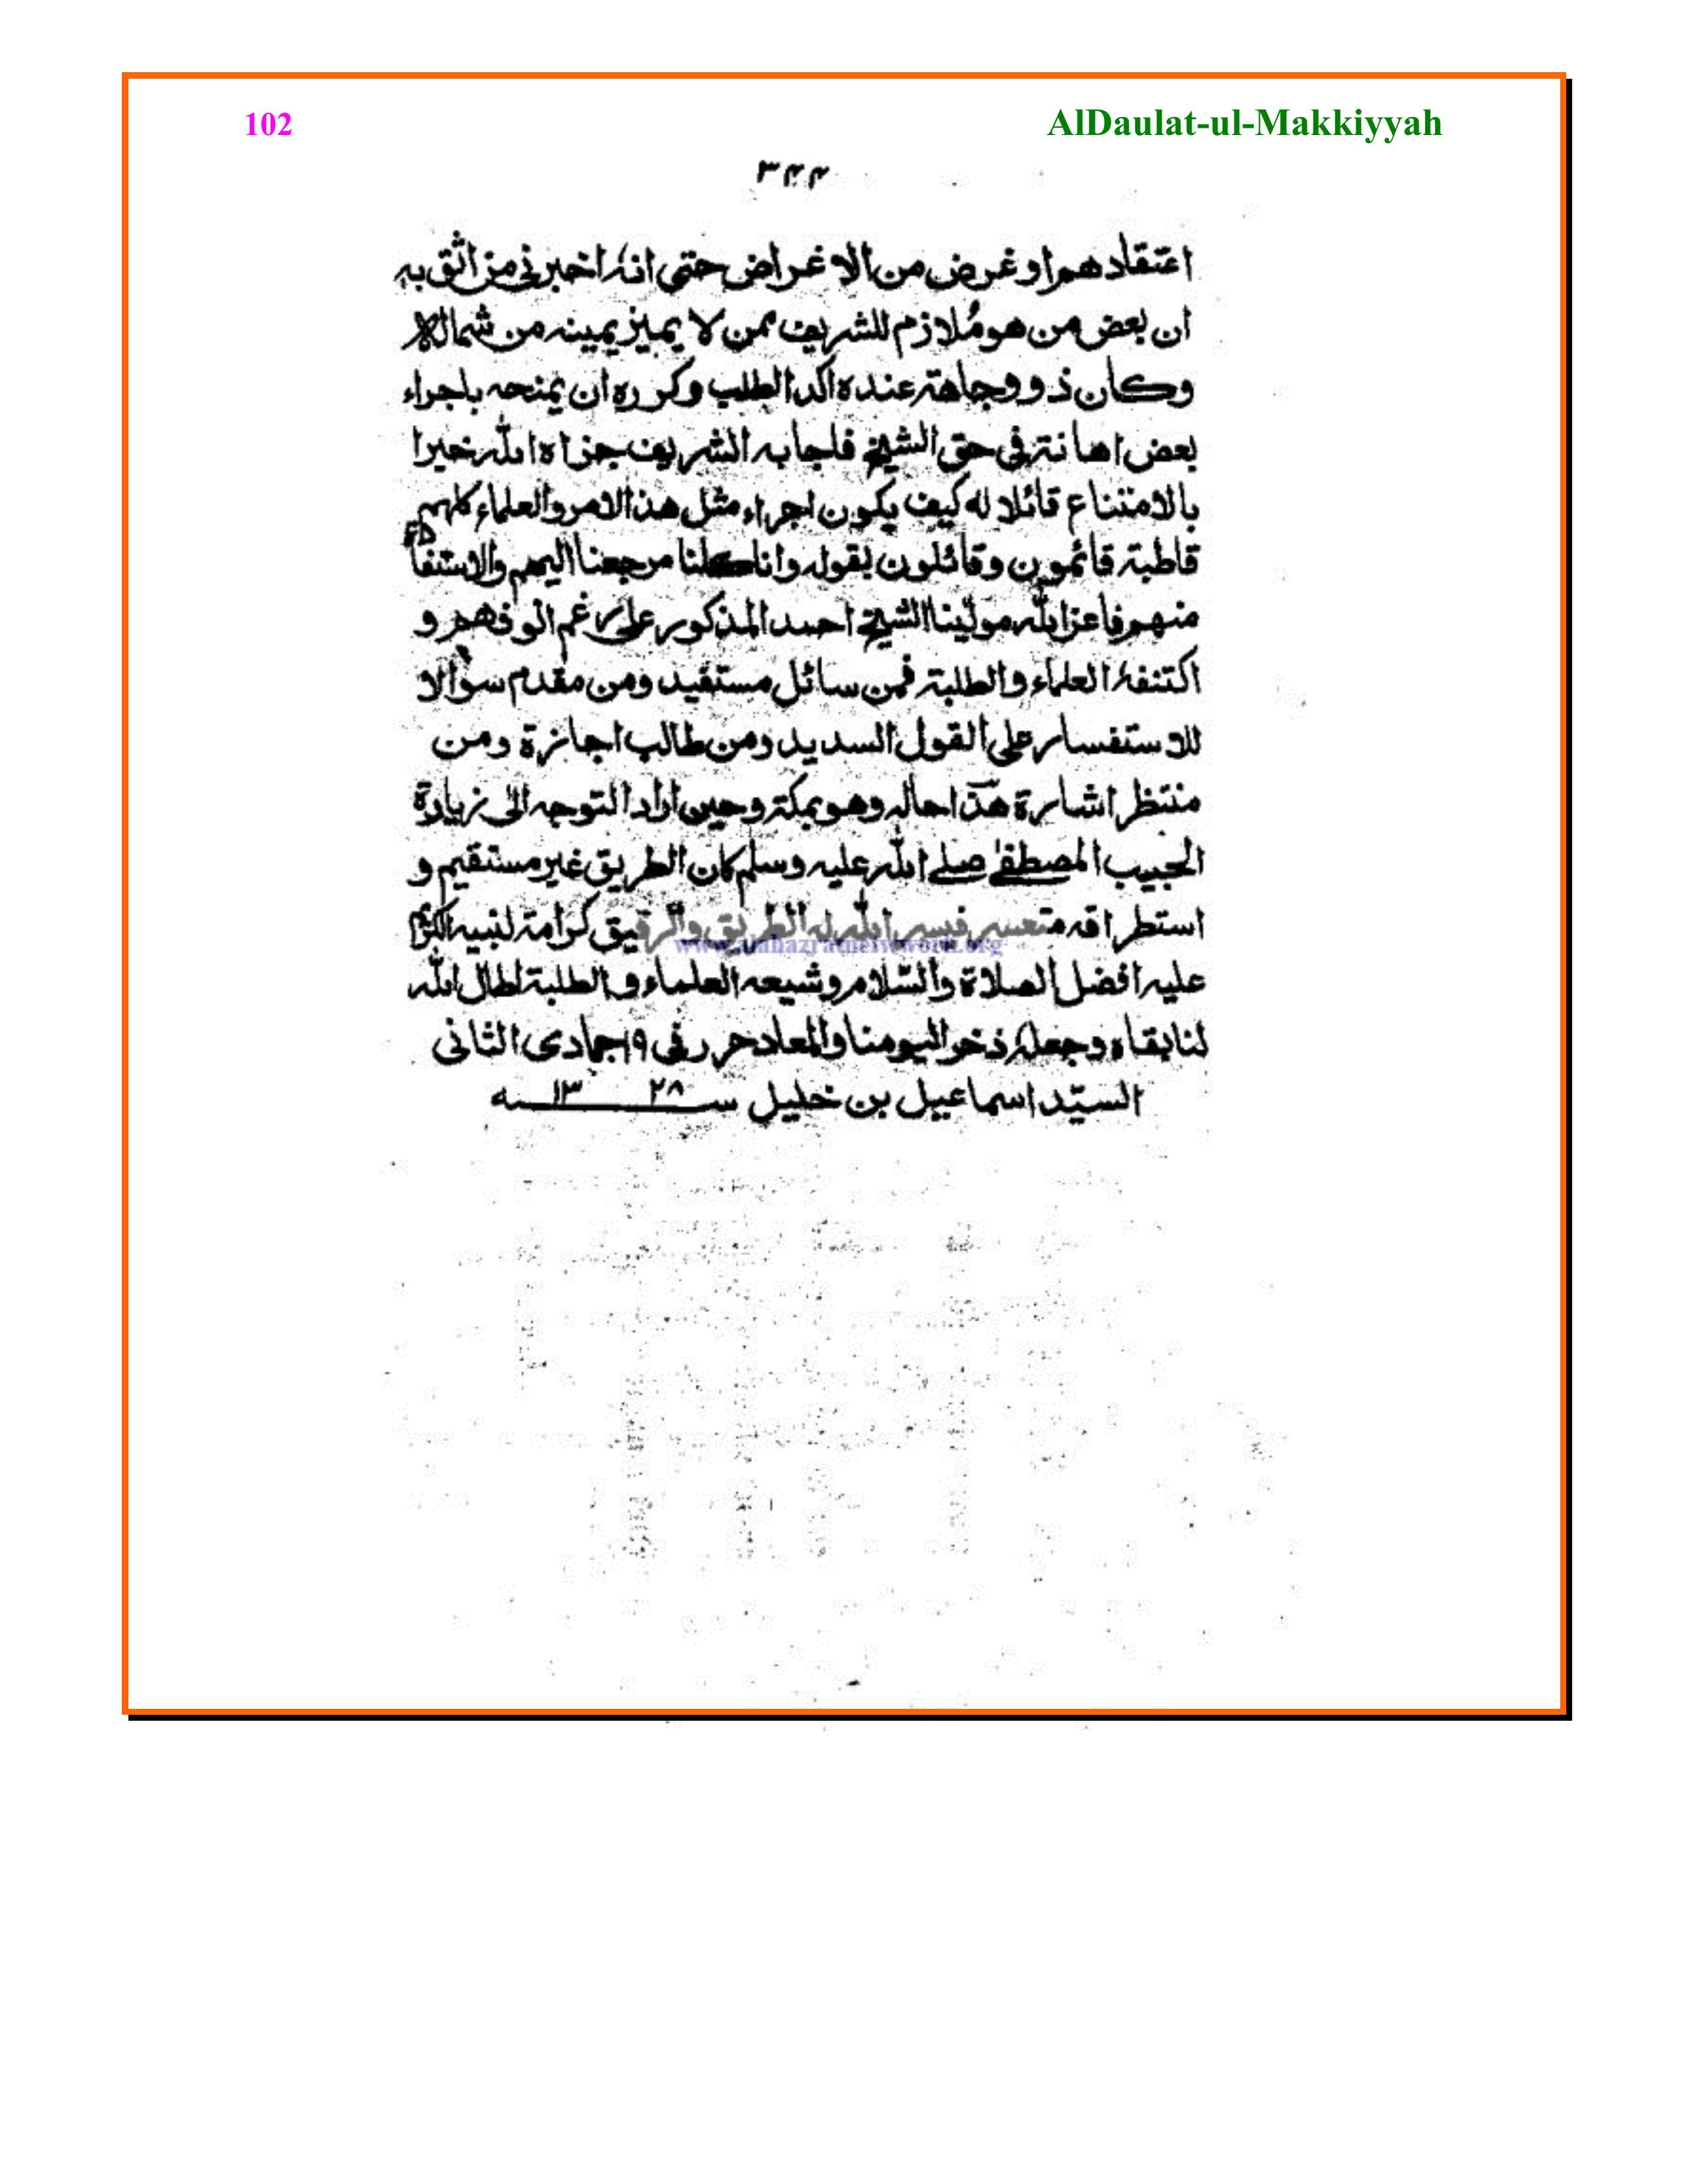 102 AlDaulat-ul-Makkiyyah
۳۴۴
اعتقادهم اوغرض من الاغراض حتى انهٗ اخبرنى من اثق به
ان بعض من هو مُلازم للشريف ممن لا يميز يمينه من شماله
وكان ذو وجاهة عنده اكد الطلب وكرره ان يمنحه باجراء
بعض اهانة فى حق الشيخ فاجابه الشريف جزاه الله خيرا
بالامتناع قائلا له كيف يكون اجراء مثل هذا الامر والعلماء كلهم
قاطبة قائمون وقائلون بقوله وانا كلنا مرجعنا اليهم والاستفادة
منهم فاعز الله مولينا الشيخ احمد المذكور على رغم انوفهم و
اكتنفهٗ العلماء والطلبة فمن سائل مستفيد ومن مقدم سوالا
للاستفسار على القول السديد ومن طالب اجازة ومن
منتظر اشارة هذا حاله وهو بمكة وحين اراد التوجه الى زيارة
الحبيب المصطفےٰ صلے الله عليه وسلم كان الطريق غير مستقيم و
استطراقه متعسر فيسر الله له الطريق والرفيق كرامة لنبيه
www.alahazratnetwork.org
عليه افضل الصلاة والسّلام وشيعه العلماء والطلبة اطال الله
لنا بقاه وجعلهٗ ذخرا ليومنا والمعاد حرر فى ۱۹ جمادى الثانى
السيّد اسماعيل بن خليل سنه ۱۳۲۸